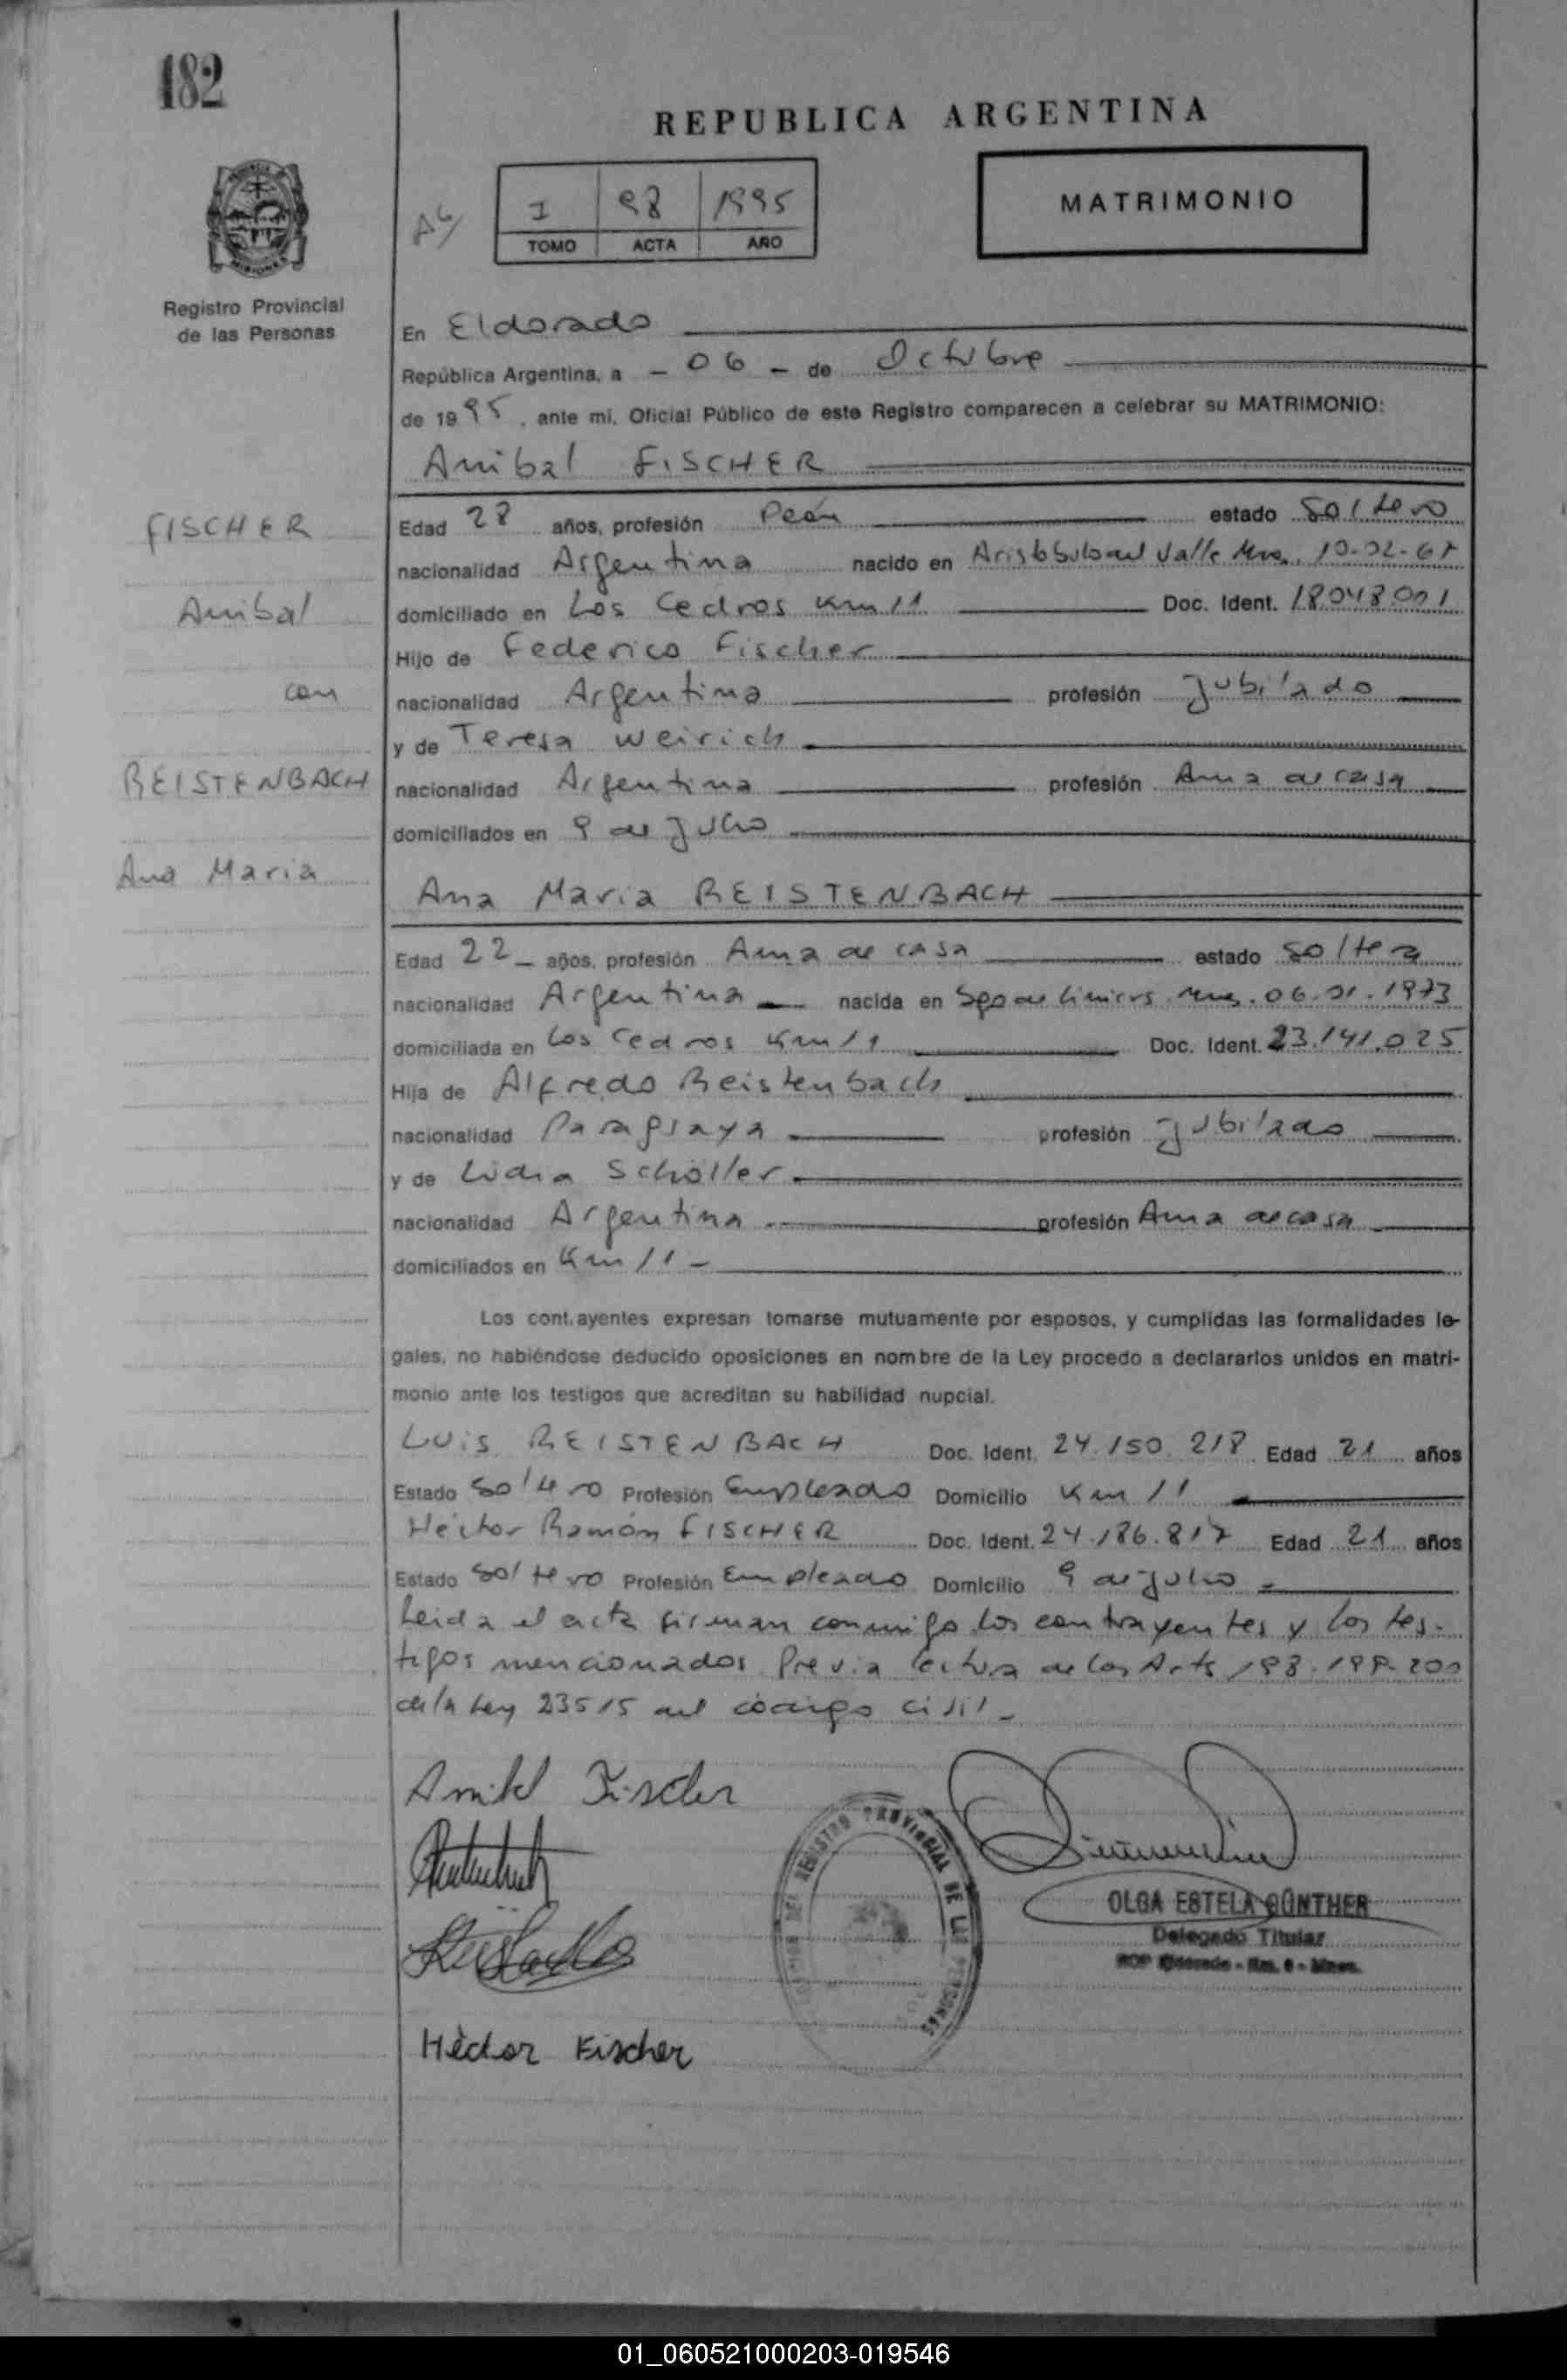 182
REPUBLICA ARGENTINA
I 98 1995
TOMO ACTA AÑO
MATRIMONIO
Registro Provincial
de las Personas
En Eldorado
República Argentina, a - 06 - de Octubre
de 1995, ante mi, Oficial Público de este Registro comparecen a celebrar su MATRIMONIO:
Anibal FISCHER
FISCHER
Anibal
con
REISTENBACH
Ana Maria
Edad 28 años, profesión Peón estado Soltero
nacionalidad Argentina nacido en Aristóbulo del Valle Mnes. 10-02-67
domiciliado en Los Cedros Km 11 Doc. Ident. 18048001
Hijo de Federico Fischer
nacionalidad Argentina profesión Jubilado
y de Teresa Weirich
nacionalidad Argentina profesión Ama de casa
domiciliados en 9 de Julio
Ana Maria REISTENBACH
Edad 22 años, profesión Ama de casa estado Soltera
nacionalidad Argentina nacida en Sgo de Liniers Mnes. 06.01.1973
domiciliada en Los Cedros Km 11 Doc. Ident. 23.141.025
Hija de Alfredo Reistenbach
nacionalidad Paraguaya profesión Jubilado
y de Lidia Schöller
nacionalidad Argentina profesión Ama de casa
domiciliados en Km 11 -
Los contrayentes expresan tomarse mutuamente por esposos, y cumplidas las formalidades le-
gales, no habiéndose deducido oposiciones en nombre de la Ley procedo a declararlos unidos en matri-
monio ante los testigos que acreditan su habilidad nupcial.
LUIS REISTENBACH Doc. Ident. 24.150.218 Edad 21 años
Estado Soltero Profesión Empleado Domicilio Km 11
Héctor Ramón FISCHER Doc. Ident. 24.186.817 Edad 21 años
Estado Soltero Profesión Empleado Domicilio 9 de Julio -
Leida el acta firman conmigo los contrayentes y los tes-
tigos mencionados Previa lectura de los Arts 198.199-200
de la Ley 23515 del código civil -
Anibal Fischer
REGISTRO PROVINCIAL DE LAS PERSONAS
OLGA ESTELA GÜNTHER
Delegado Titular
Héctor Fischer
01_060521000203-019546